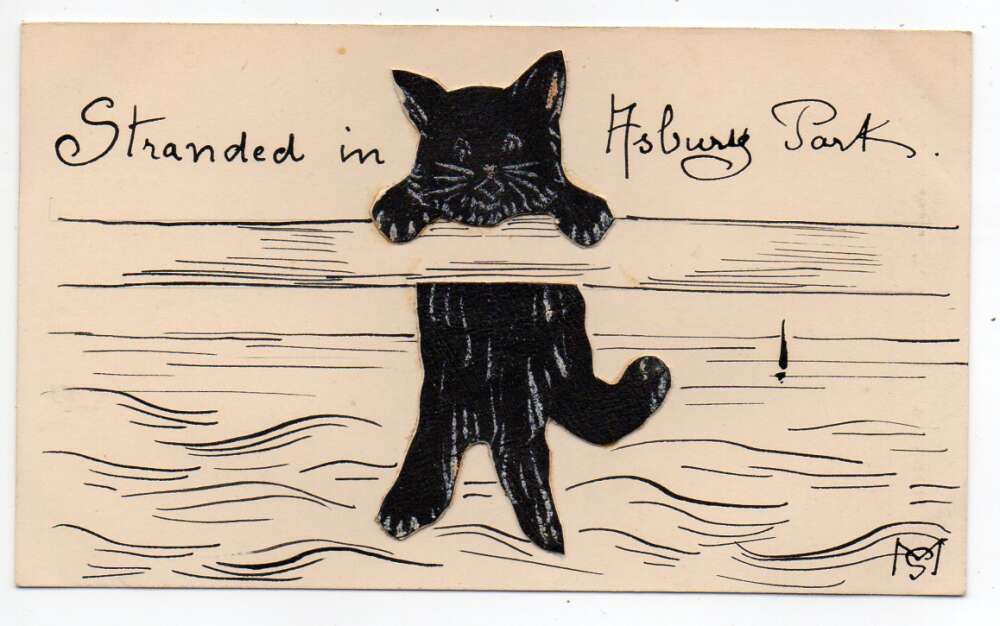 Stranded in Asbury Park.
MS